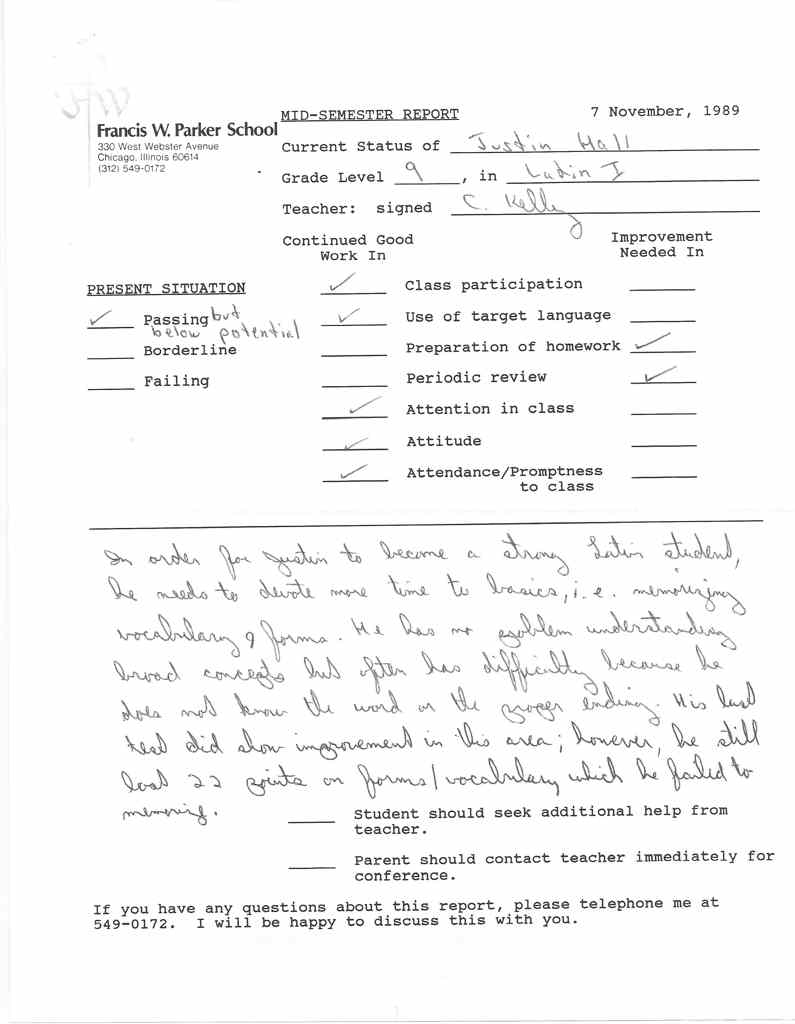 MID-SEMESTER REPORT 7 November, 1989
Francis W. Parker School
330 West Webster Avenue
Chicago, Illinois 60614
(312) 549-0172
Current Status of Justin Hall
Grade Level 9, in Latin I
Teacher: signed C. Kelly
Continued Good Work In
Improvement Needed In
PRESENT SITUATION
✓ Class participation
✓ Passing but below potential
✓ Use of target language
Borderline
Preparation of homework ✓
Periodic review ✓
Failing
✓ Attention in class
✓ Attitude
✓ Attendance/Promptness
to class
In order for Justin to become a strong Latin student,
he needs to devote more time to basics, i.e. memorizing
vocabulary & forms. He has no problem understanding
broad concepts but often has difficulty because he
does not know the word or the proper ending. His last
test did show improvement in this area; however, he still
lost 22 points on forms/vocabulary which he failed to
memorize.
Student should seek additional help from
teacher.
Parent should contact teacher immediately for
conference.
If you have any questions about this report, please telephone me at
549-0172. I will be happy to discuss this with you.